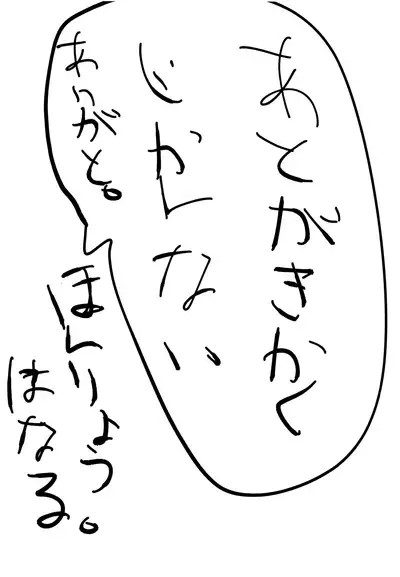 あとがきかく
じかんない
ありがと。
ほんりょう。
はなる。